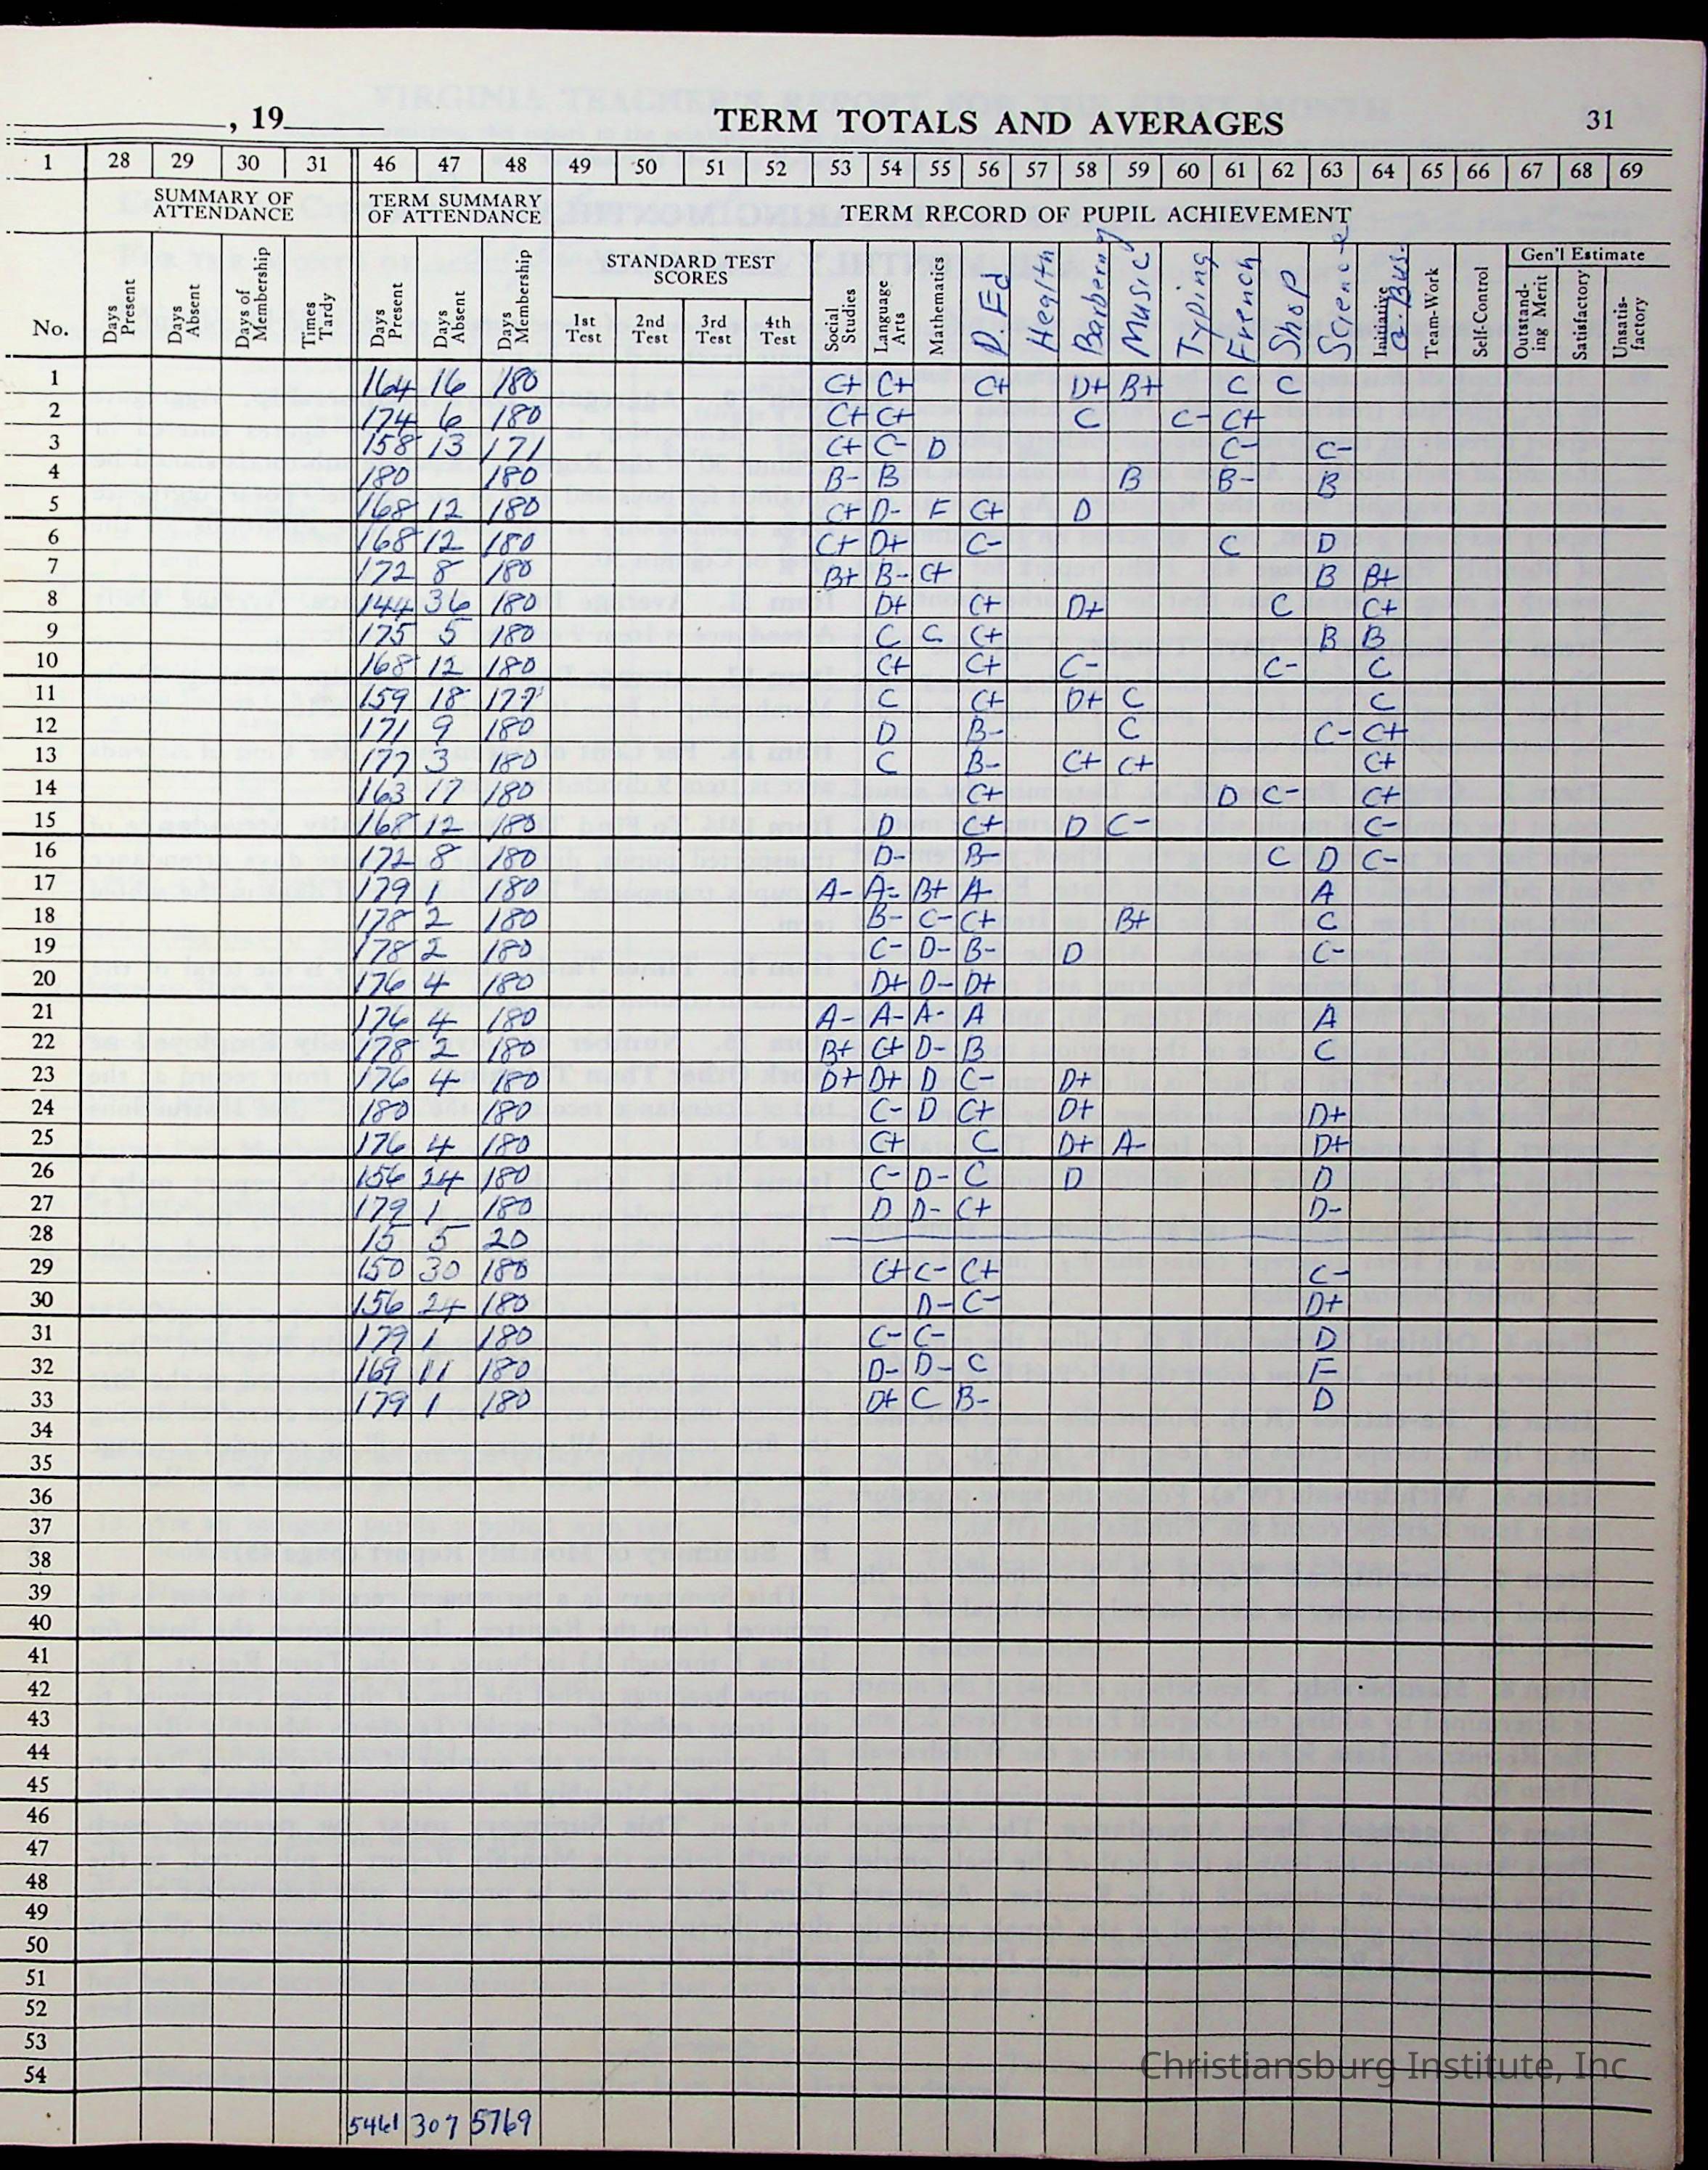 , 19 TERM TOTALS AND AVERAGES 31
1 28 29 30 31 46 47 48 49 50 51 52 53 54 55 56 57 58 59 60 61 62 63 64 65 66 67 68 69
SUMMARY OF ATTENDANCE TERM SUMMARY OF ATTENDANCE TERM RECORD OF PUPIL ACHIEVEMENT
No. Days Present Days Absent Days of Membership Times Tardy Days Present Days Absent Days Membership STANDARD TEST SCORES 1st Test 2nd Test 3rd Test 4th Test Social Studies Language Arts Mathematics P. Ed Health Barbery Music Typing French Shop Science Initiative G. Bus. Team-Work Self-Control Gen'l Estimate Outstanding Merit Satisfactory Unsatisfactory
1 164 16 180 C+ C+ C+ D+ B+ C C
2 174 6 180 C+ C+ C C- C+
3 158 13 171 C+ C- D C- C-
4 180 180 B- B B B- B
5 168 12 180 C+ D- F C+ D
6 168 12 180 C+ D+ C- C D
7 172 8 180 B+ B- C+ B B+
8 144 36 180 D+ C+ D+ C C+
9 175 5 180 C C C+ B B
10 168 12 180 C+ C+ C- C- C
11 159 18 177 C C+ D+ C C
12 171 9 180 D B- C C- C+
13 177 3 180 C B- C+ C+ C+
14 163 17 180 C+ D C- C+
15 168 12 180 D C+ D C- C-
16 172 8 180 D- B- C D C-
17 179 1 180 A- A- B+ A- A
18 178 2 180 B- C- C+ B+ C
19 178 2 180 C- D- B- D C-
20 176 4 180 D+ D- D+
21 176 4 180 A- A- A- A A
22 178 2 180 B+ C+ D- B C
23 176 4 180 D+ D+ D C- D+
24 180 180 C- D C+ D+ D+
25 176 4 180 C+ C D+ A- D+
26 156 24 180 C- D- C D D
27 179 1 180 D D- C+ D-
28 15 5 20
29 150 30 180 C+ C- C+ C-
30 156 24 180 D- C- D+
31 179 1 180 C- C- D
32 169 11 180 D- D- C F
33 179 1 180 D+ C B- D
34
35
36
37
38
39
40
41
42
43
44
45
46
47
48
49
50
51
52
53
54
Christiansburg Institute, Inc
5461 307 5769